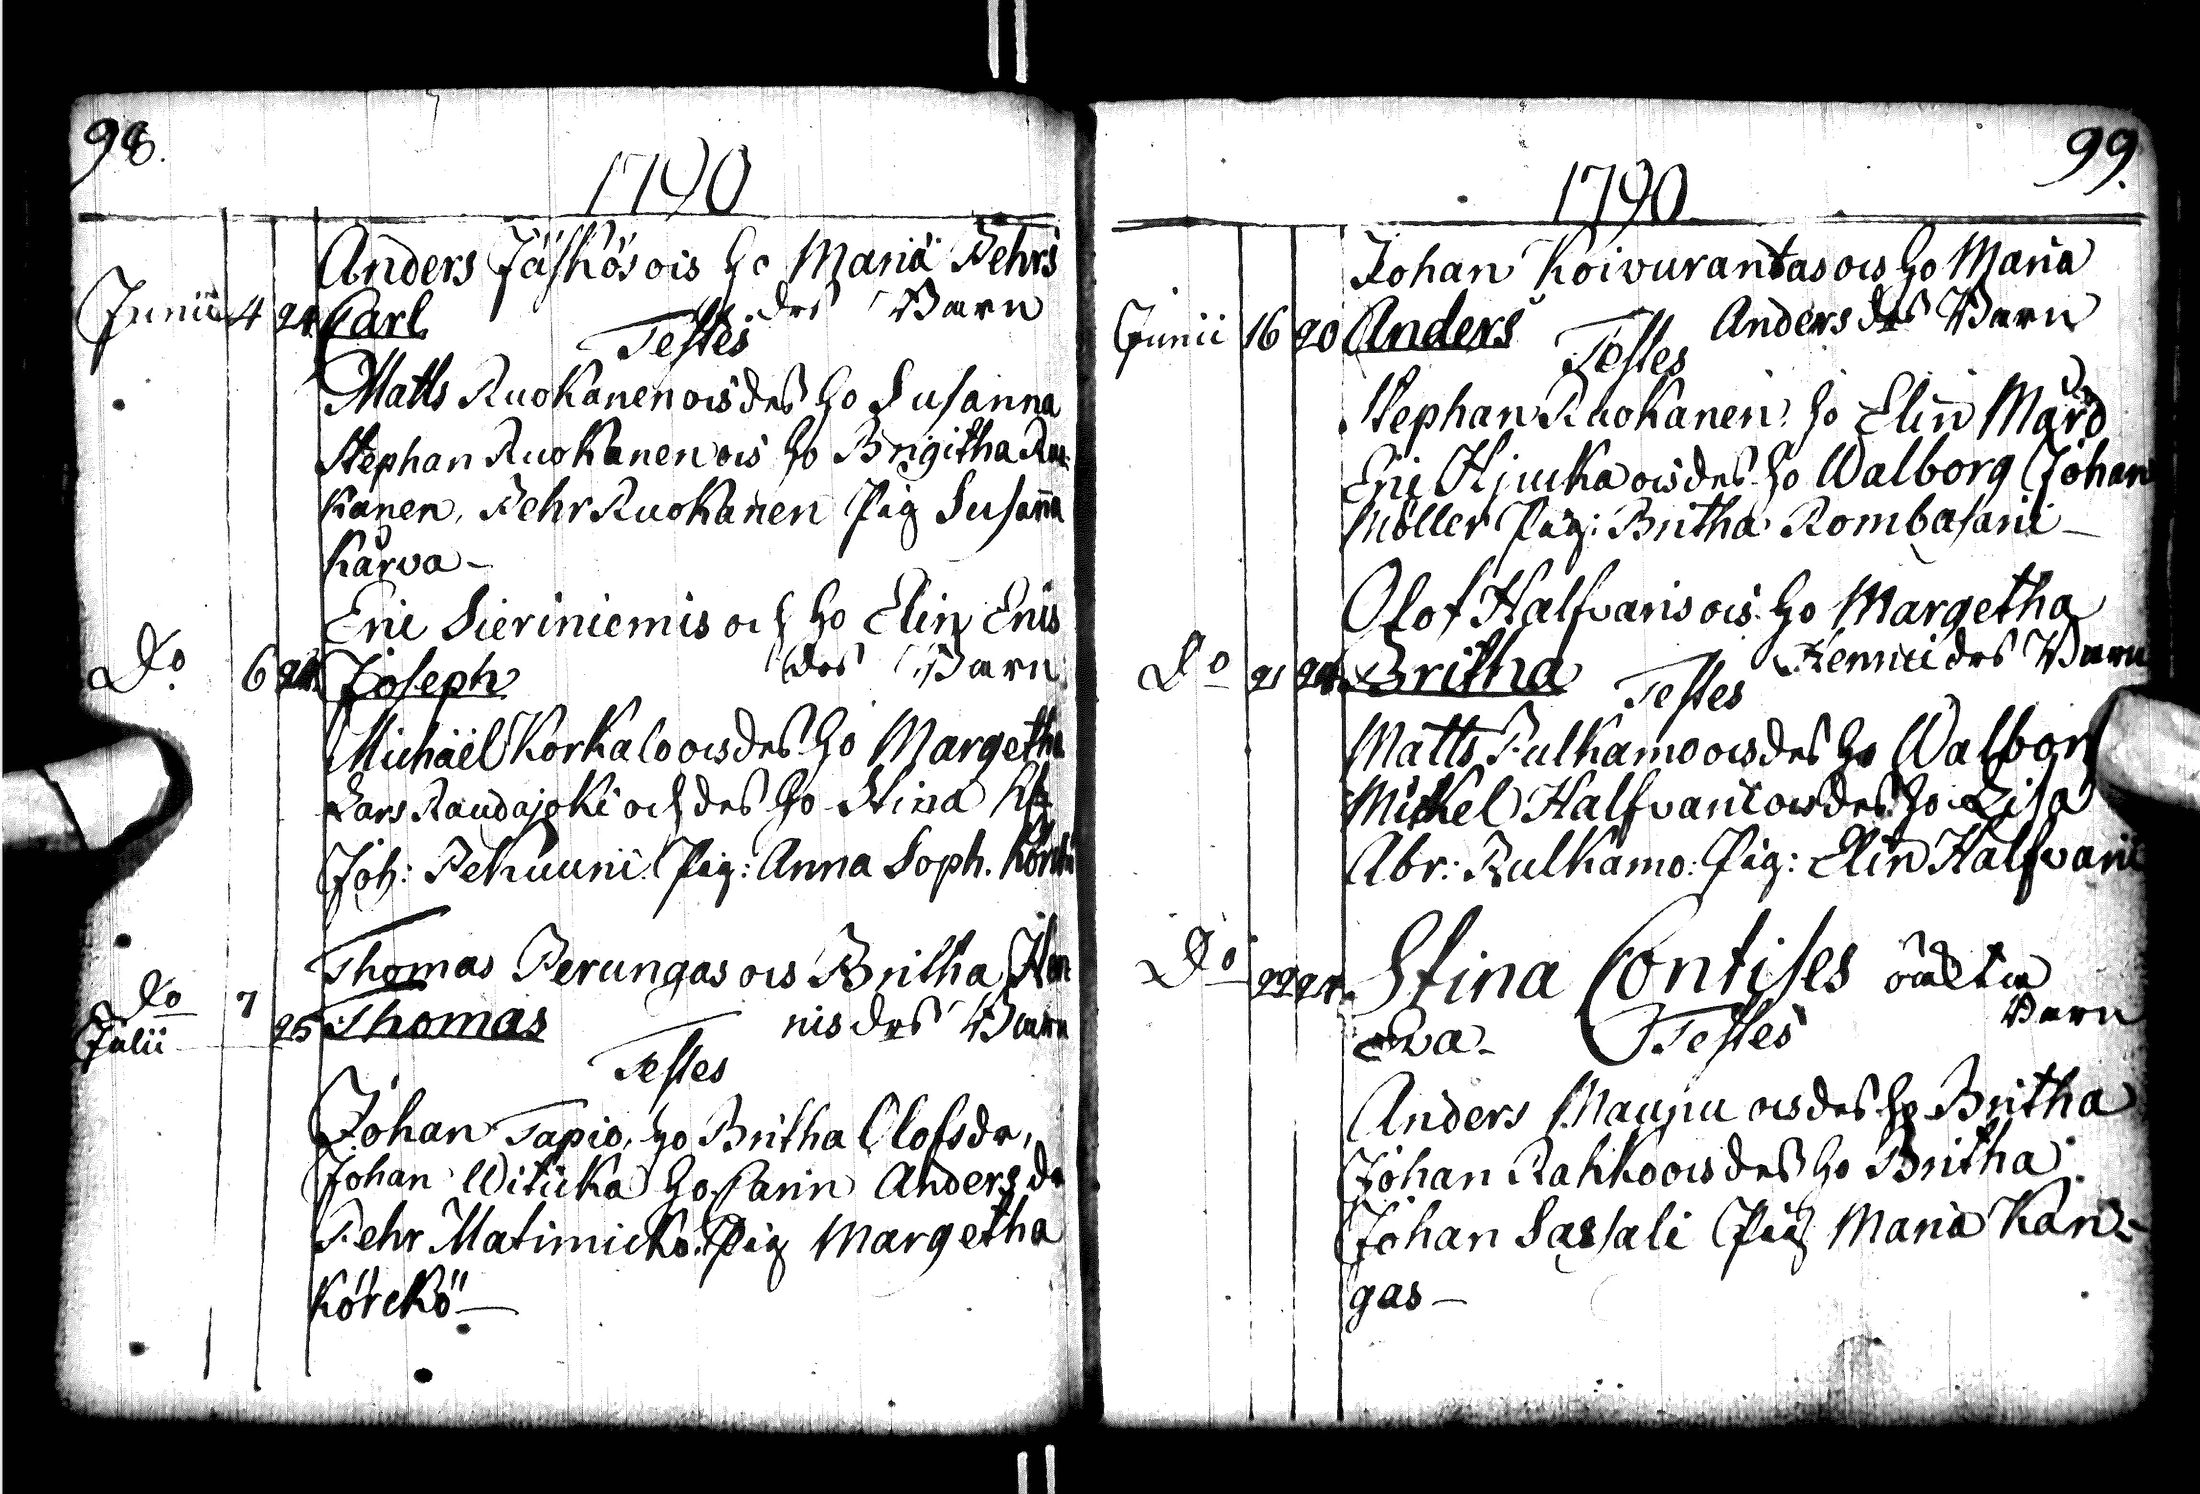 98.
1790
Anders Jäskös ois ho Maria Pehrs
Junii 4 24 Carl des Barn
Testes
Matts Ruokanen ois des ho Susanna
Stephan Ruokanen ois ho Brigitha Ruo-
kanen, Pehr Ruokanen Pig Susanna
Kärva –
Eric Sieriniemis och ho Elin Erics
Do 6 24 Joseph des Barn
Michäel Korkalo ois des ho Margetha
Lars Raudajoki och des ho Stina
Joh: Pekuuni Pig: Anna Soph.
Thomas Perungas ois Britha Hen
Do 7
Julii 25 Thomas nis des Barn
Testes
Johan Tapio, ho Britha Olofsdr,
Johan Witicka ho Carin Andersdr
Pehr Matimicko Pig Margetha
Körckö –
99.
1790
Johan Koivurantas ois ho Maria
Junii 16 20 Anders Anders des Barn
Testes
Stephan Ruokanen ho Elin Mård
Eric Hjucka ois des ho Walborg Johan
Möller Pig: Britha Rombasani –
Olof Halfvaris ois ho Margetha
Do 21 24 Britha Kemiä des Barn
Testes
Matts Pulkamo ois des ho Walborg
Mickel Halfvari ois des ho Lisa
Abr: Pulkamo: Pig: Elin Halfvari
Do 22 24 Stina Contises oäckta
Eva – Testes Barn
Anders Maunu ois des ho Britha
Johan Rahko ois des ho Britha
Johan Sassali Pig Maria Kan-
gas –